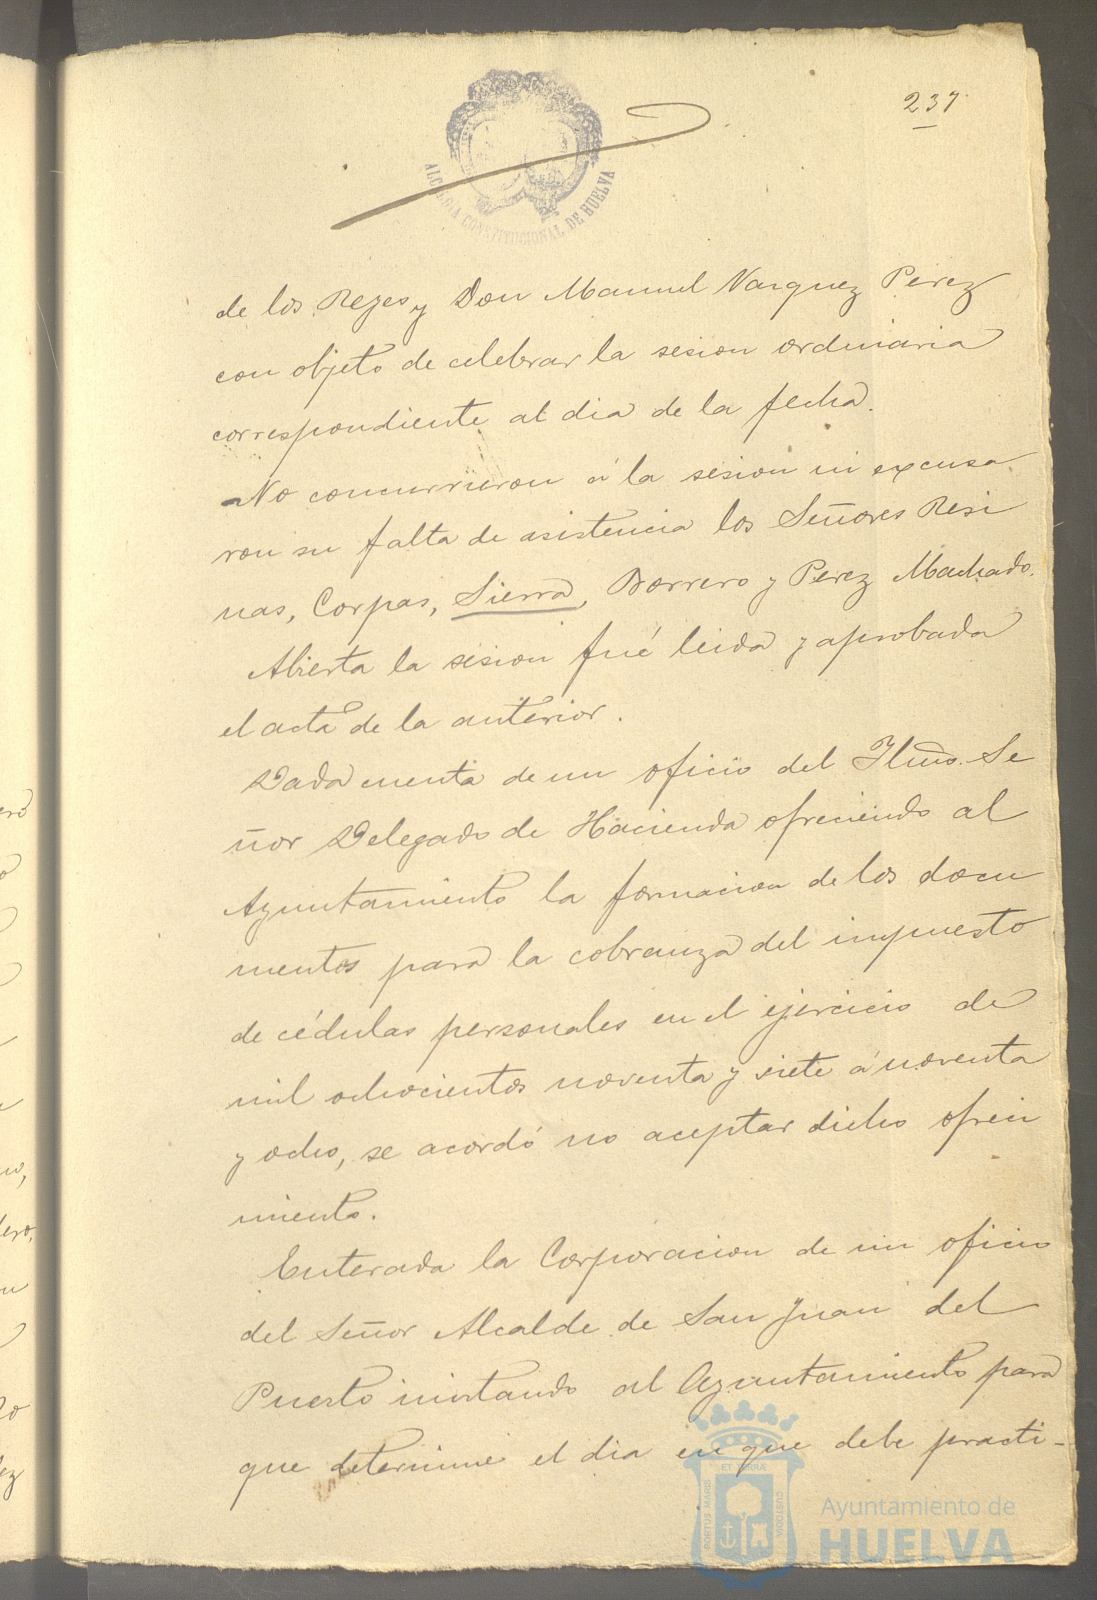 237
ALCALDIA CONSTITUCIONAL DE HUELVA
de los Reyes y Don Manuel Vazquez Perez
con objeto de celebrar la sesion ordinaria
correspondiente al dia de la fecha.
No concurrieron á la sesion ni excusa
ron su falta de asistencia los Señores Resi
nas, Corpas, Sierra, Borrero y Perez Machado.
Abierta la sesion fué leida y aprobada
el acta de la anterior.
Dada cuenta de un oficio del Ilmo. Se
ñor Delegado de Hacienda ofreciendo al
Ayuntamiento la formacion de los docu
mentos para la cobranza del impuesto
de cédulas personales en el ejercicio de
mil ochocientos noventa y siete á noventa
y ocho, se acordó no aceptar dicho ofreci
miento.
Enterada la Corporacion de un oficio
del Señor Alcalde de San Juan del
Puerto invitando al Ayuntamiento para
que determine el dia en que debe practi-
PORTUS MARIS ET TERRÆ CUSTODIA
Ayuntamiento de
HUELVA